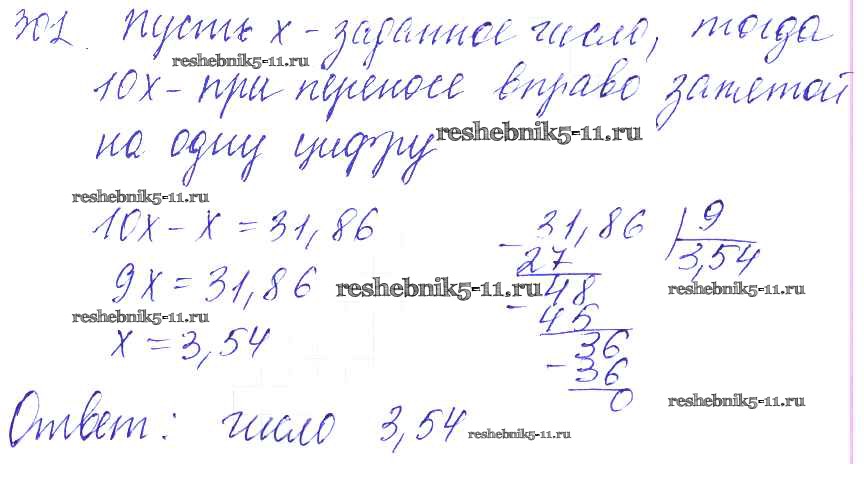 301. Пусть x - заданное число, тогда
reshebnik5-11.ru
10x - при переносе вправо запятой
на одну цифру
reshebnik5-11.ru
reshebnik5-11.ru
10x - x = 31,86
9x = 31,86
reshebnik5-11.ru
reshebnik5-11.ru
x = 3,54
- 31,86 | 9
27 3,54
reshebnik5-11.ru
- 48
45
36
- 36
0
reshebnik5-11.ru
Ответ: число 3,54
reshebnik5-11.ru